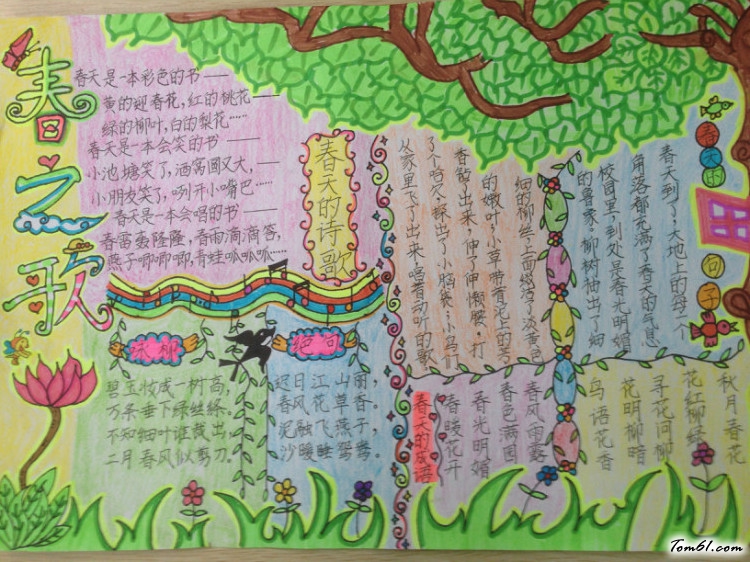 春之歌
春天是一本彩色的书——
黄的迎春花，红的桃花——
绿的柳叶，白的梨花……
春天是一本会笑的书——
小池塘笑了，酒窝圆又大，——
小朋友笑了，咧开小嘴巴……
春天是一本会唱的书——
春雷轰隆隆，春雨滴滴答，
燕子唧唧唧，青蛙呱呱呱……
春天的诗歌
咏柳
碧玉妆成一树高，
万条垂下绿丝绦。
不知细叶谁裁出，
二月春风似剪刀。
绝句
迟日江山丽，
春风花草香。
泥融飞燕子，
沙暖睡鸳鸯。
春天的句子
春天到了，大地上的每一个
角落都充满了春天的气息
校园里，到处是春光明媚
的景象。柳树抽出了细
细的柳丝，上面缀满了淡黄色
的嫩叶；小草带着泥土的芳
香钻了出来，伸了伸懒腰，打
了个哈欠，探出了小脑袋；小鸟们
从家里飞了出来，唱着动听的歌
春天的成语
春暖花开
春光明媚
春色满园
春风雨露
鸟语花香
花明柳暗
寻花问柳
花红柳绿
秋月春花
Tom61.com